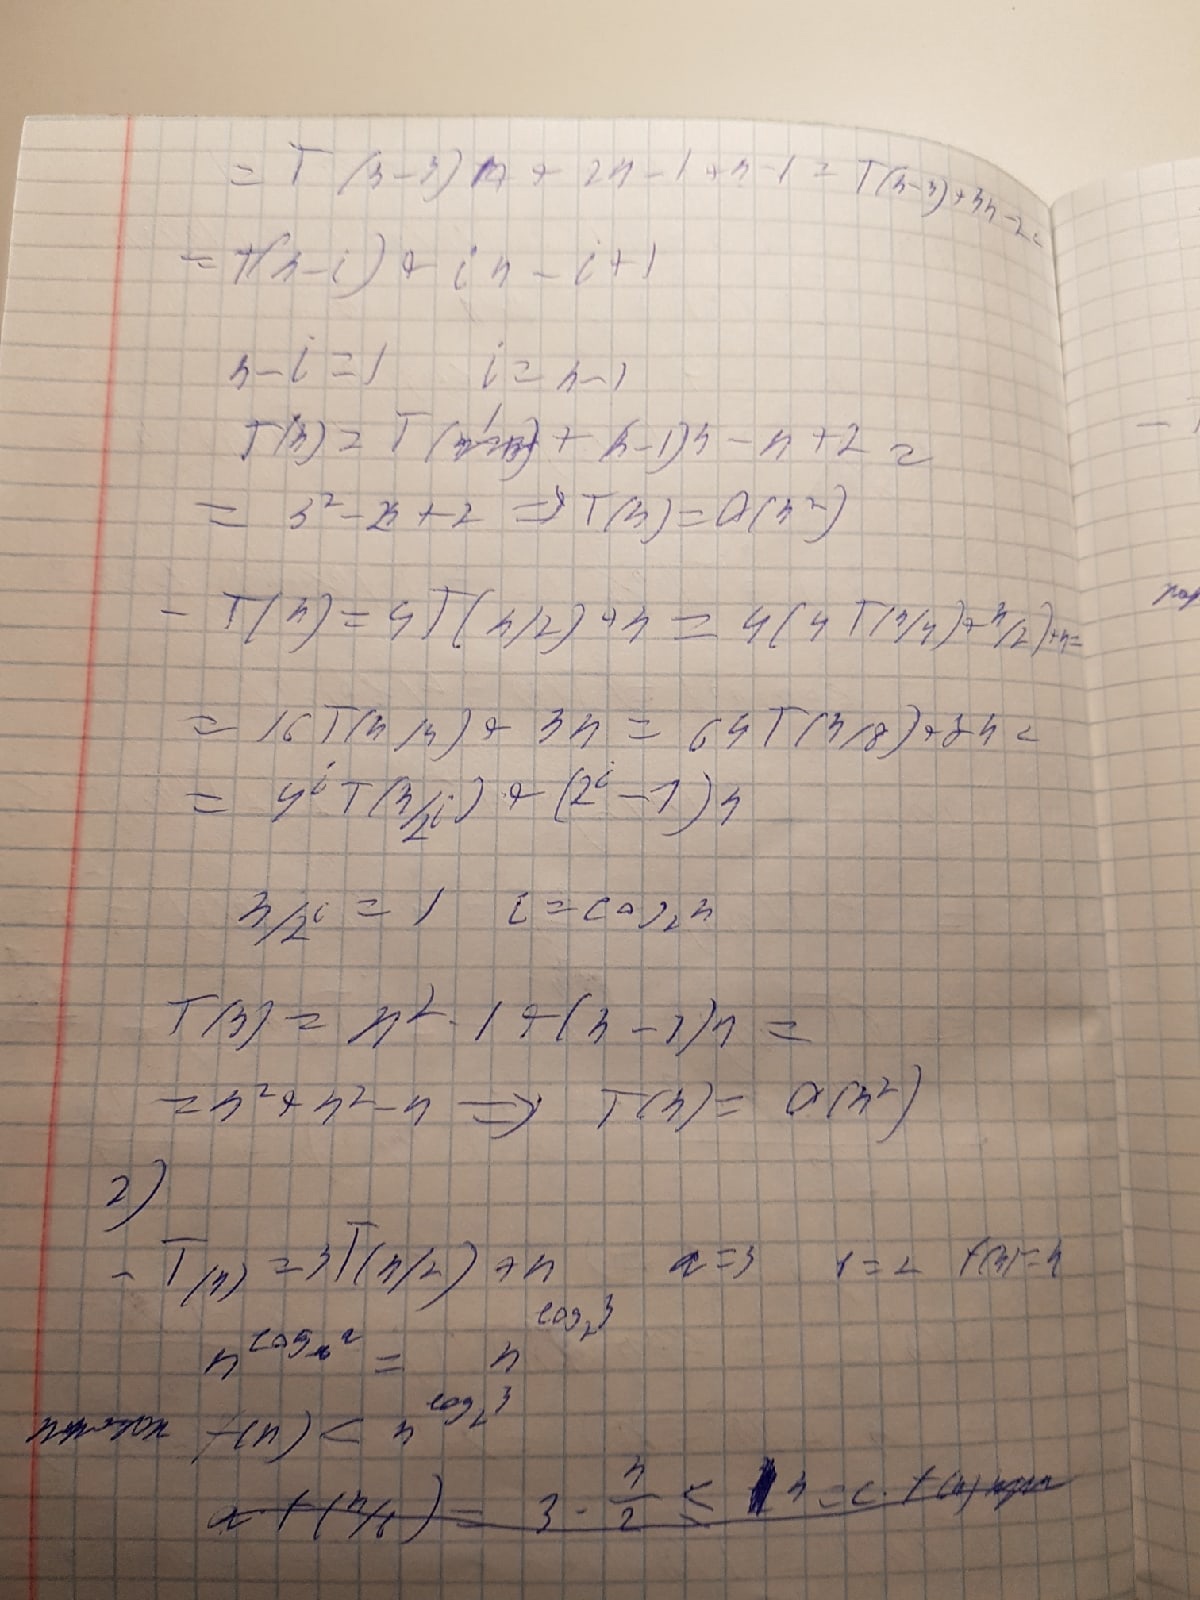 = T(n-3) + 2n-1+n-1 = T(n-3)+3n-2=
= T(n-i) + in - i+1
n-i=1 i=n-1
T(n) = T(1) + (n-1)n - n+2 =
= n²-2n+2 => T(n)=O(n²)
- T(n)=4T(n/2)+n = 4(4T(n/4)+n/2)+n=
= 16T(n/4)+3n = 64T(n/8)+8n=
= 4^i T(n/2^i) + (2^i-1)n
n/2^i = 1 i=log₂n
T(n) = n²·1+(n-1)n =
= n²+n²-n => T(n)= O(n²)
2)
- T(n) =3T(n/2)+n a=3 b=2 f(n)=n
n^log = n^log₂3
f(n) < n^log₂3
a·f(n/b) = 3·n/2 ≤ n = c·f(n)